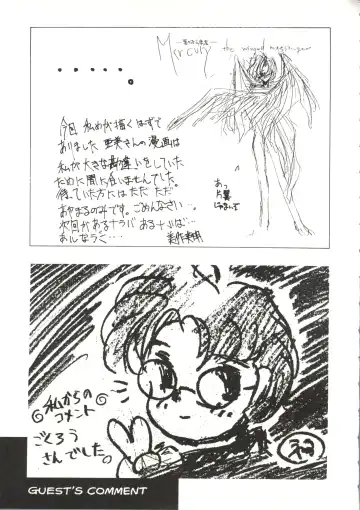 Mercury the winged messenger
・・・・・。
今回 私めが描くはずで
ありました 亜美さんの漫画は
私が大きな勘違いをしていた
ために間に合いませんでした。
待っていた方には ただ ただ。
あやまるのみです。ごめんなさい…
次回があるナラバ あるナラば…
おしなうぐ…
あっ
片翼
じゃない!
私からの
コメント
ごくろう
さんでした。
GUEST'S COMMENT